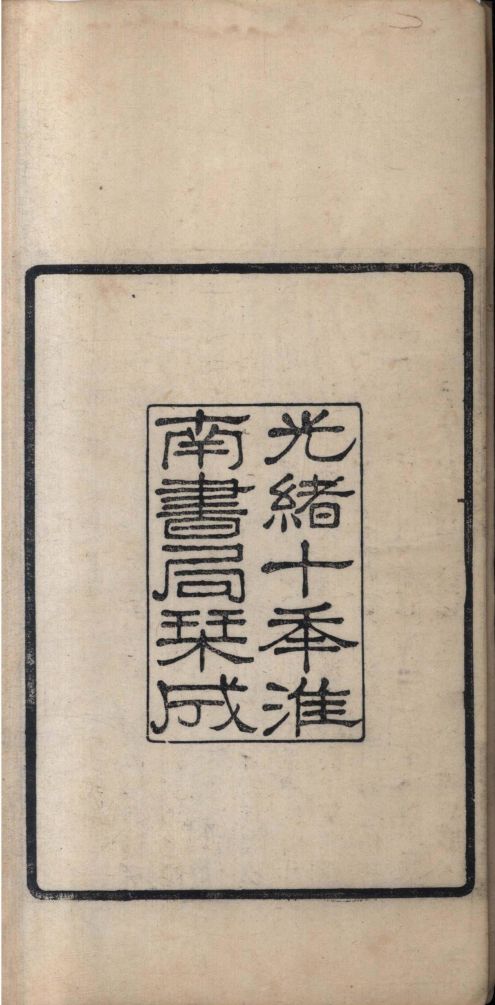 光緒十年淮
南書局栞成